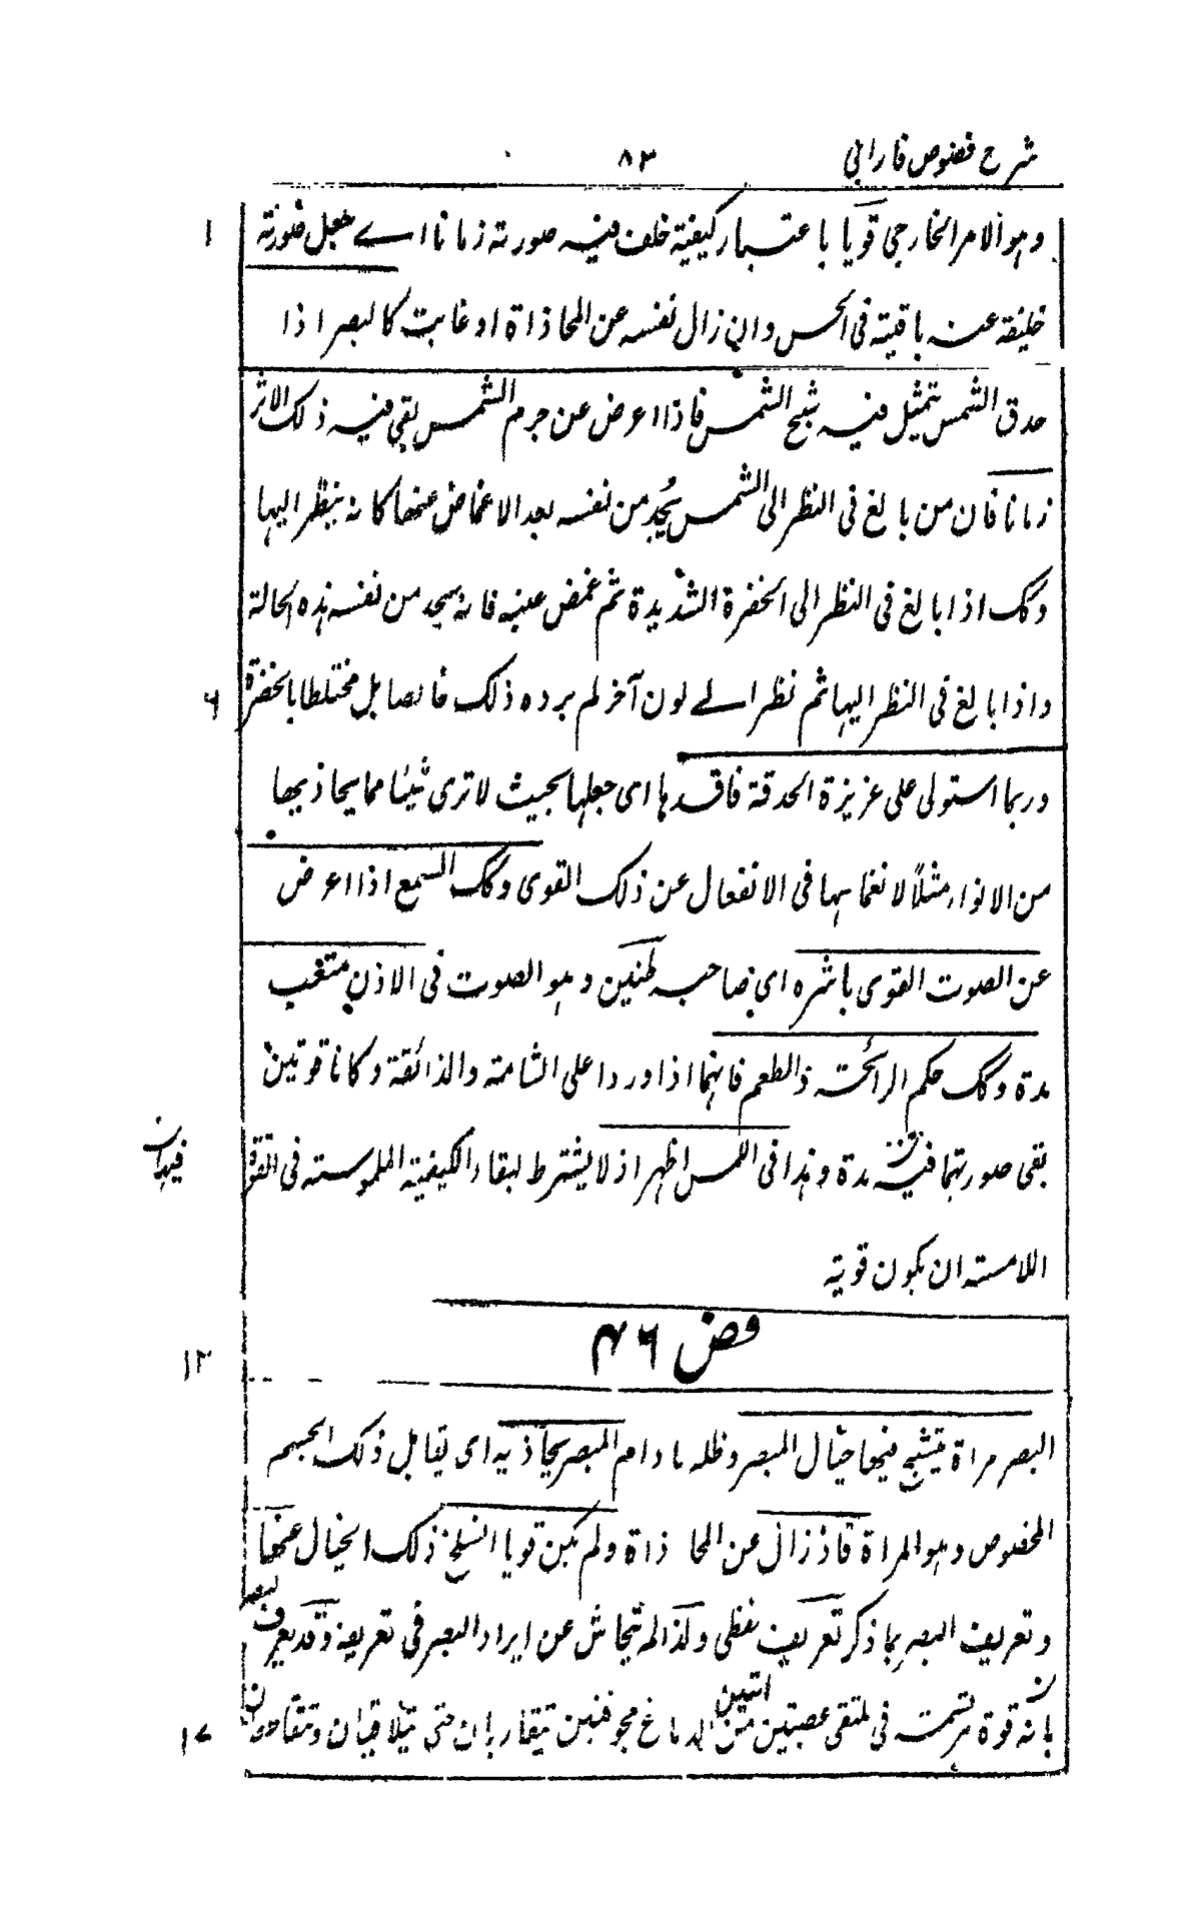 شرح فصوص فارابی ۸۳
وہو الامر الخارجی قویا باعتبار کیفیۃ خلف فیہ صورتہ زمانا اے جعل صورتہ ۱
خلیفۃ عنہ باقیۃ فی الحس وان زال نفسہ عن المحاذاۃ او غابت کالبصر اذا
حدق الشمس یتمثل فیہ شبح الشمس فاذا اعرض عن جرم الشمس بقی فیہ ذلک الاثر
زمانا فان من بالغ فی النظر الی الشمس یجد من نفسہ بعد الاغماض عنھا کانہ ینظر الیہا
وکک اذا بالغ فی النظر الی الخضرۃ الشدیدۃ ثم غمض عینہ فانہ یجد من نفسہ ہذہ الحالۃ
واذا بالغ فی النظر الیہا ثم نظر الے لون آخر لم یرہ ذلک خالصا بل مختلطا بالخضرۃ ۶
وربما استولی علی غریزۃ الحدقۃ فافسدہا ای جعلہا بحیث لا تری شیئا مما یحاذیھا
من الانوار مثلاً لانغماسہا فی الانفعال عن ذلک القوی وکک السمع اذا اعرض
عن الصوت القوی باشرہ ای صاحبہ طنین وہو الصوت فی الاذن متعب
مدۃ وکک حکم الرائحۃ والطعم فانہما اذا وردا علی الشامۃ والذائقۃ وکانا قوتین
بقی صورتہما فیہ مدۃ وہذا فی اللمس اظہر اذ لا یشترط لبقاء الکیفیۃ الملموسۃ فی القوۃ
فیہما ن
اللامسۃ ان یکون قویۃ
فص ۴۶
۱۲
البصر مراۃ یتشبح فیھا خیال المبصر وظلہ مادام المبصر یحاذیہ ای یقابل ذلک الجسم
المخصوص وہو المراۃ فاذا زال عن المحاذاۃ ولم یکن قویا انسلخ ذلک الخیال عنھا
وتعریف البصر بما ذکر تعریف لفظی ولذا لم یتحاش عن ایراد البصر فی تعریفہ وقد یعرف البصر
بانہ قوۃ مرتبۃ فی ملتقی عصبتین من الدماغ مجوفتین یتقاربان حتی یتلاقیان ۱۷